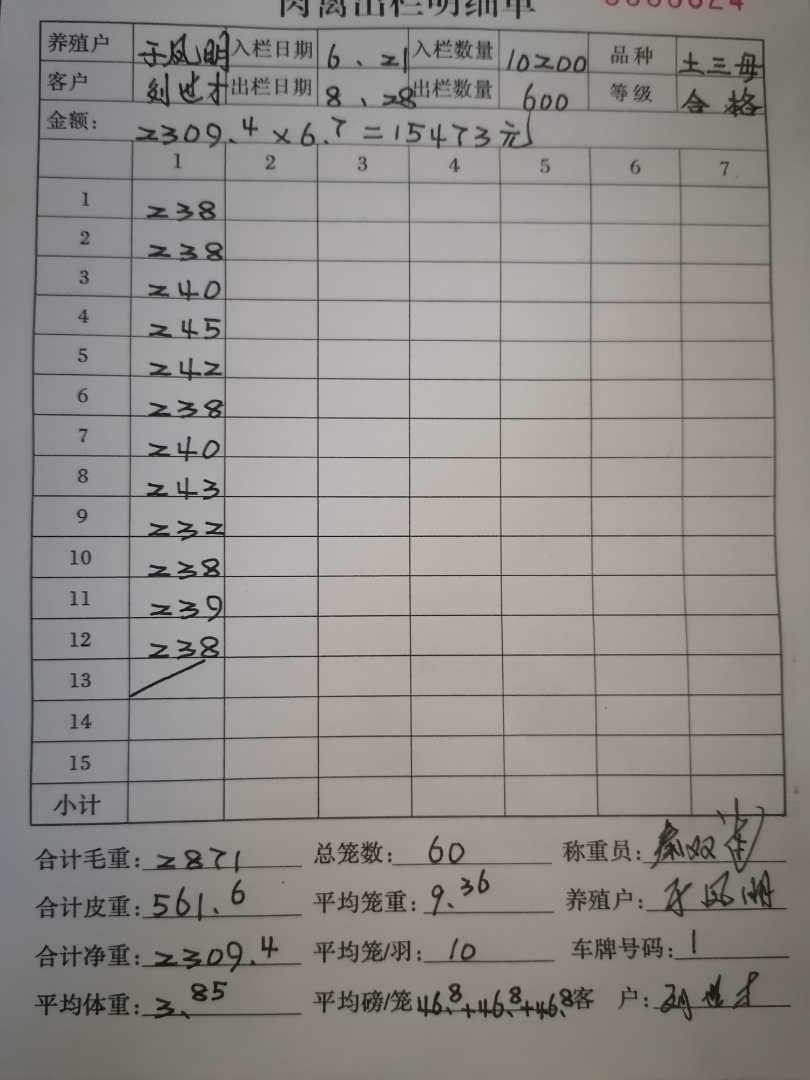 肉禽出栏明细单 0000624
养殖户 于凤明 入栏日期 6、21 入栏数量 10200 品种 土三母
客户 刘世才 出栏日期 8、28 出栏数量 600 等级 合格
金额: 2309.4×6.7=15473元
1 2 3 4 5 6 7
1 238
2 238
3 240
4 245
5 242
6 238
7 240
8 243
9 232
10 238
11 239
12 238
13
14
15
小计
合计毛重: 2871 总笼数: 60 称重员: 秦双
合计皮重: 561.6 平均笼重: 9.36 养殖户: 于凤明
合计净重: 2309.4 平均笼/羽: 10 车牌号码: 1
平均体重: 3、85 平均磅/笼 46.8+46.8+46.8 客户: 刘世才